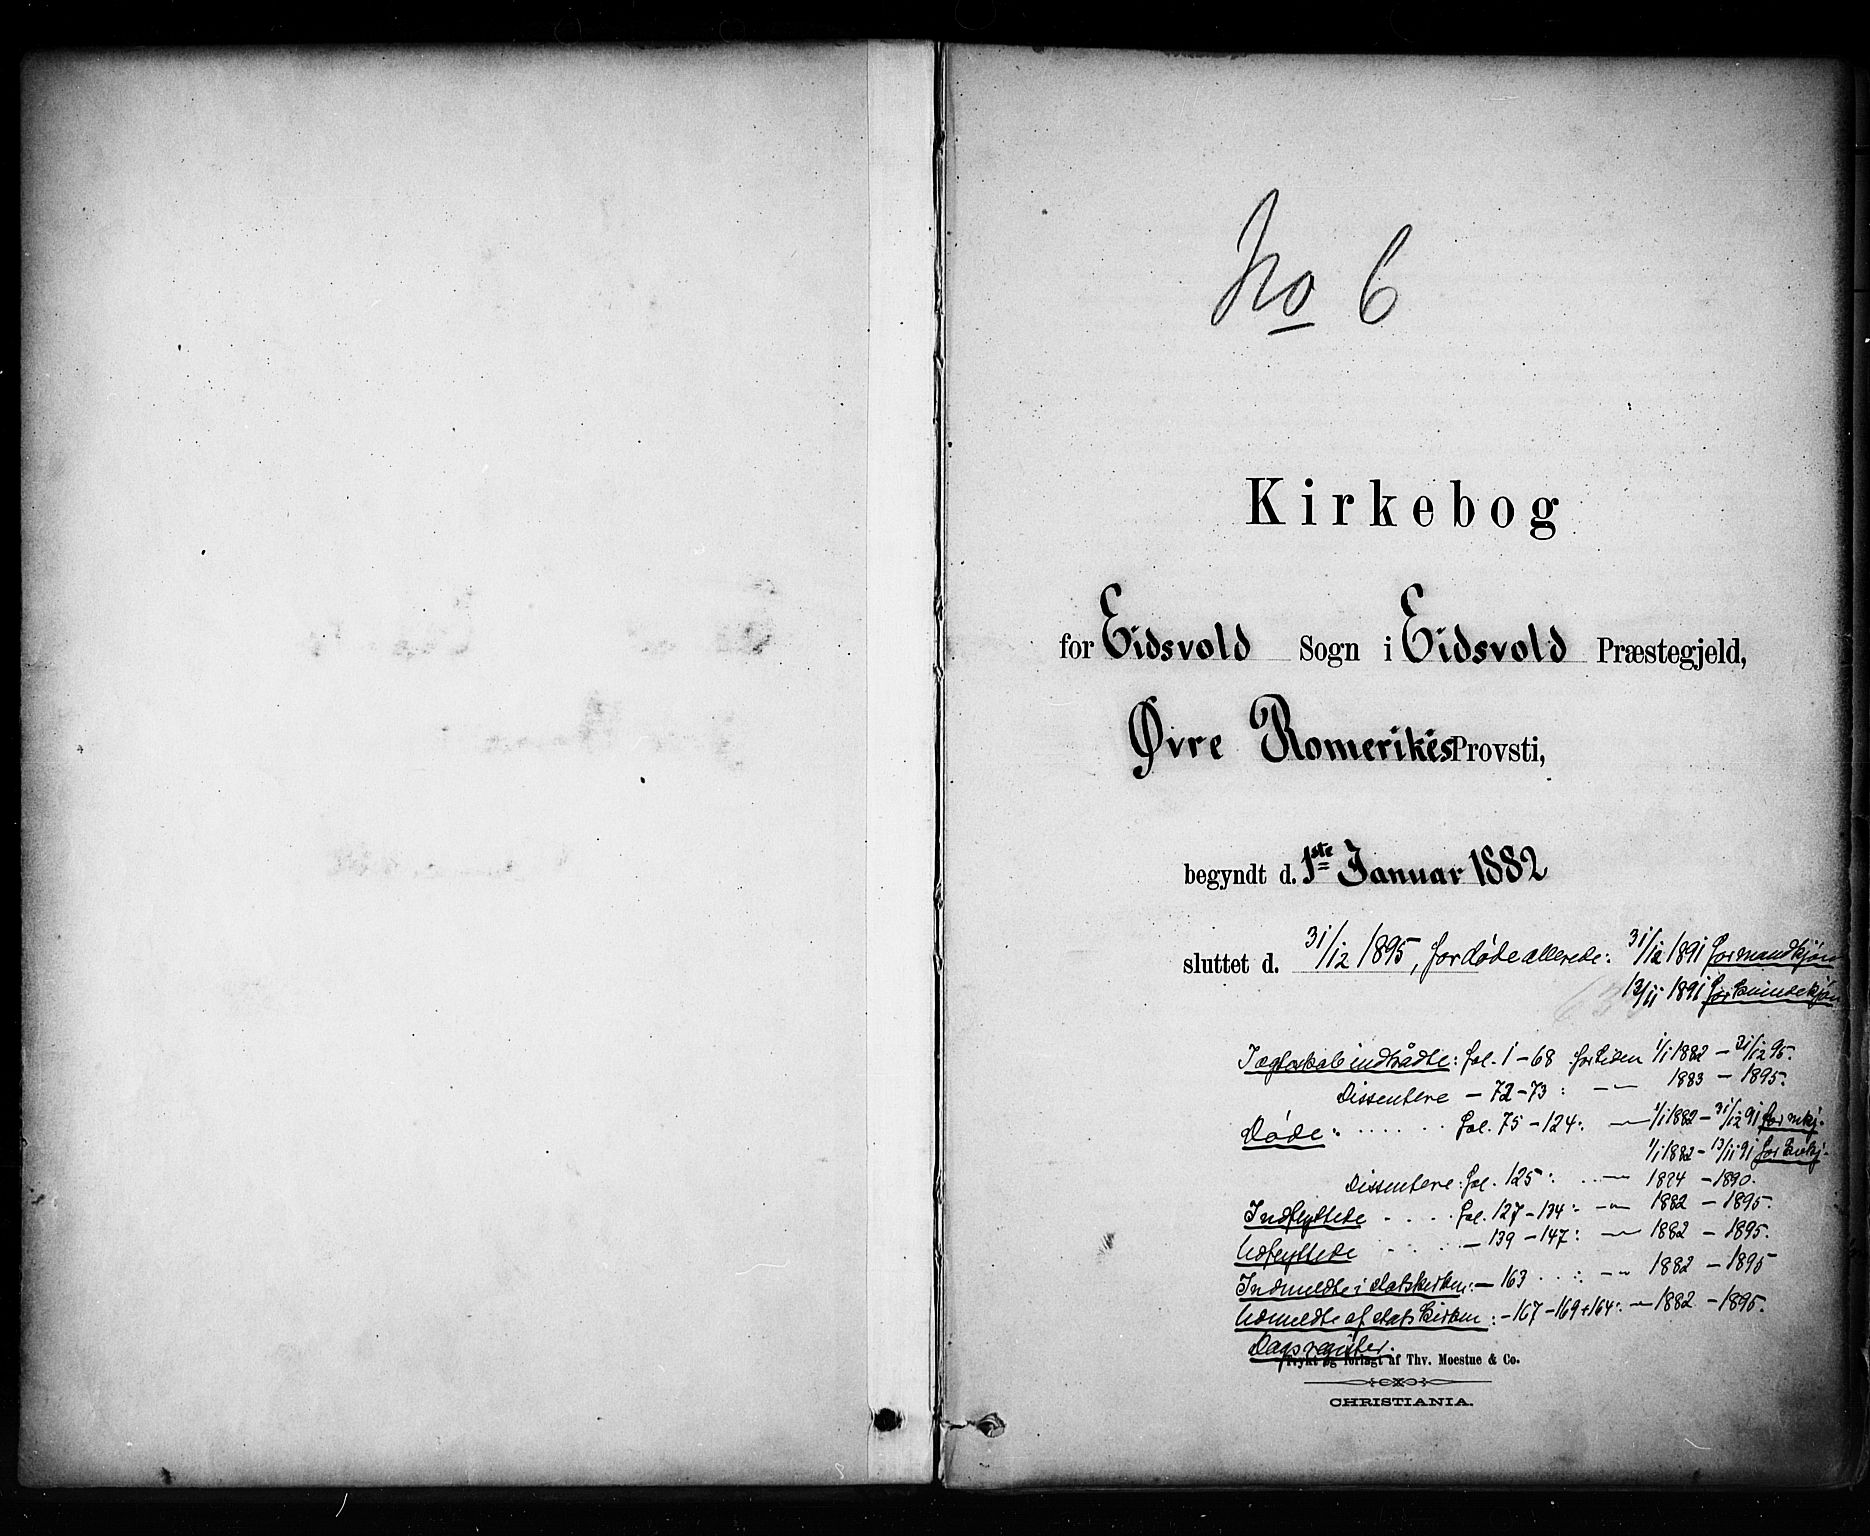 No 6
Kirkebog
for Eidsvold Sogn i Eidsvold Præstegjeld,
Øvre Romerikes Provsti,
begyndt d. 1ste Januar 1882
sluttet d. 31/12 1895, for døde allerede: 31/12 1891 for mandkjøn
13/11 1891 for kvindekjøn
I ægteskab indtrådte: fol. 1-68 for tiden 1/1 1882 - 31/12 95.
Dissentere - 72-73 : -"- 1883 - 1895.
Døde: ...... fol. 75-124: -"- 1/1 1882 - 31/12 91 for mkj.
1/1 1882 - 13/11 91 for kvkj.
Dissentere: fol. 125: ..-"- 1884 - 1890.
Indflyttede .... fol. 127-134: -"- 1882 - 1895.
Udflyttede .... - 139-147: -"- 1882 - 1895.
Indmeldte i statskirken: - 163 ...: -"- 1882 - 1895
Udmeldte af statskirken: - 167-169+164: -"- 1882 - 1895.
Dagsregister.
Trykt og forlagt af Thv. Moestue & Co.
CHRISTIANIA.